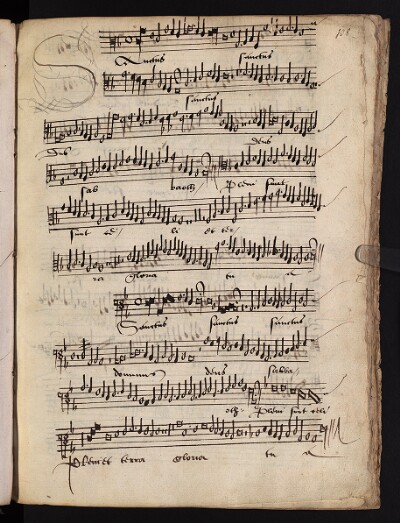 Sanctus sanctus
sanctus
deus
sab baoth Pleni sunt
sunt ce li et ter
ra gloria tu a
Sanctus sanctus sanctus
dominus deus sabba
oth Pleni sunt celi
Pleni et terra gloria tu a